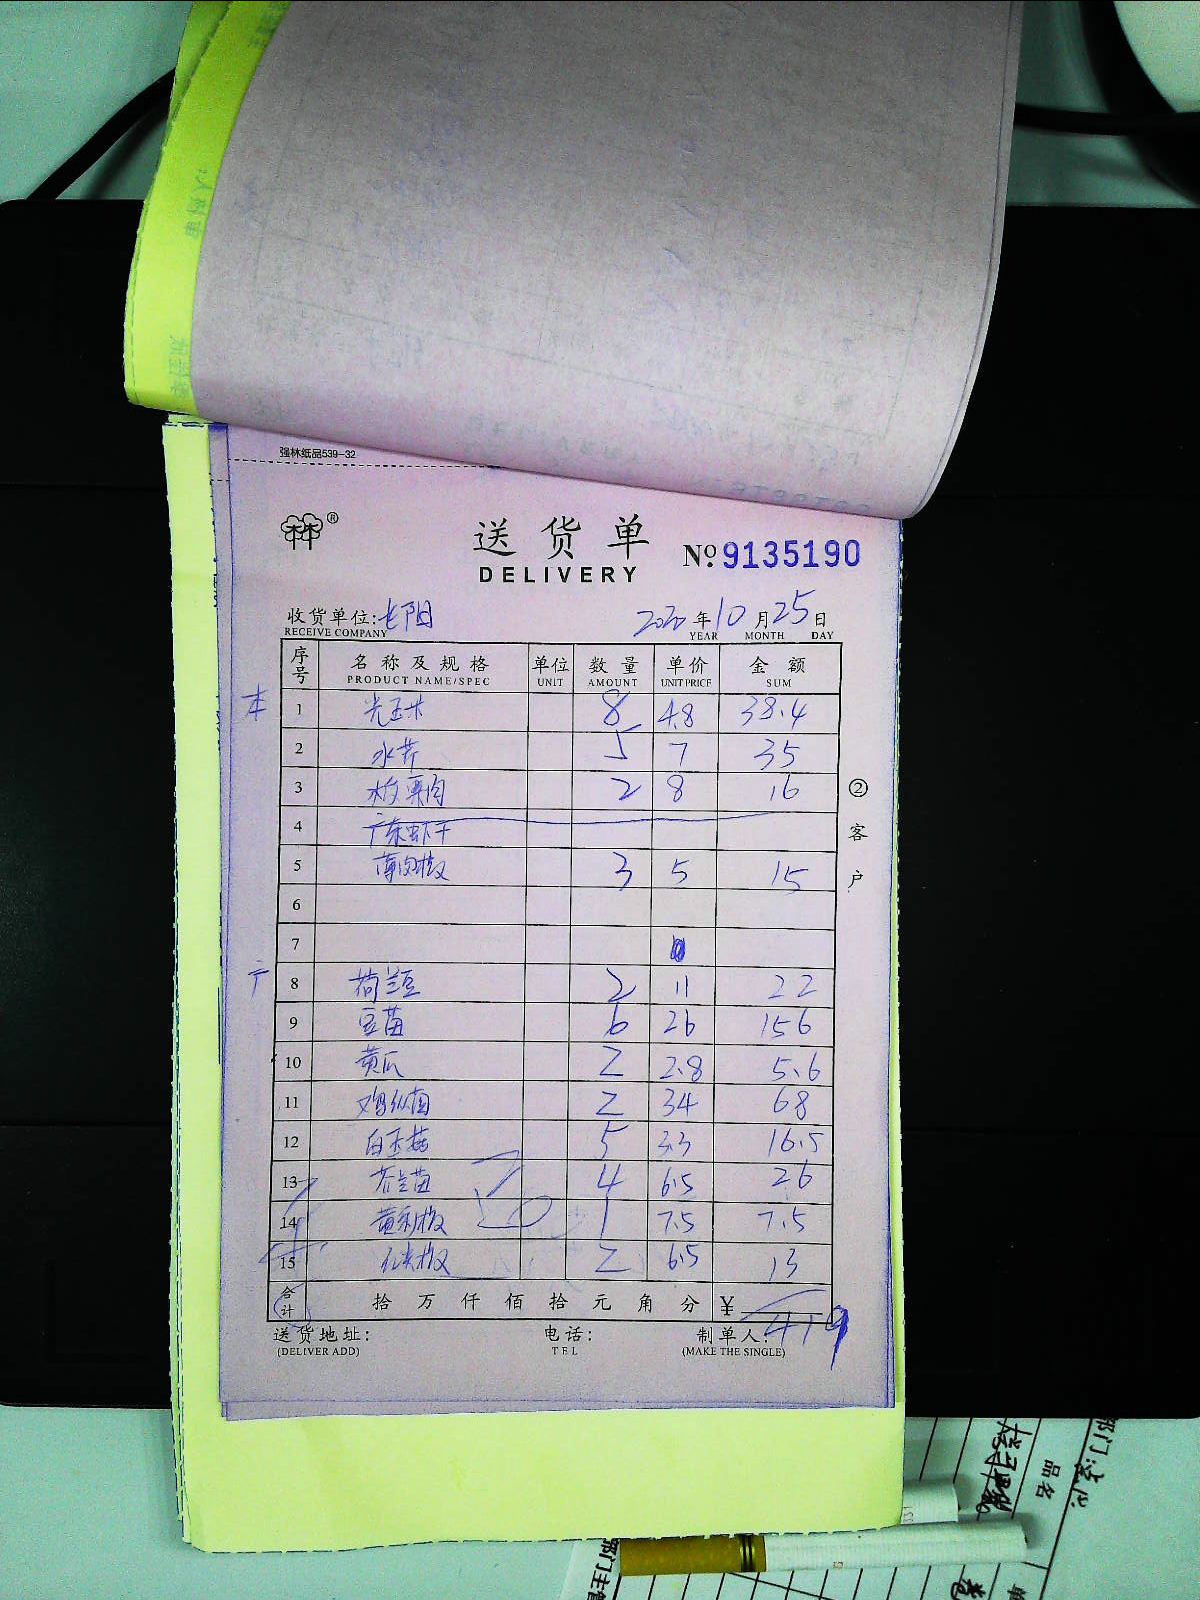 强林纸品539-32
®
送货单
DELIVERY
№ 9135190
收货单位:长阳 2020年10月25日
RECEIVE COMPANY YEAR MONTH DAY
序号 名称及规格 单位 数量 单价 金额
PRODUCT NAME/SPEC UNIT AMOUNT UNIT PRICE SUM
本 1 光玉米 8 4.8 38.4
2 水芹 5 7 35
3 水果肉 2 8 16
4 广东虾干
5 薄肉椒 3 5 15
6
7
8 荷兰豆 2 11 22
9 豆苗 6 26 156
10 黄瓜 2 2.8 5.6
11 鸡枞菌 2 34 68
12 白玉菇 5 3.3 16.5
13 芥兰苗 4 6.5 26
14 黄利椒 1 7.5 7.5
15 红尖椒 2 6.5 13
合计 拾万仟佰拾元角分 ¥ 419
送货地址: 电话: 制单人:
(DELIVER ADD) TEL (MAKE THE SINGLE)
②客户
部门:
品名
部门主管